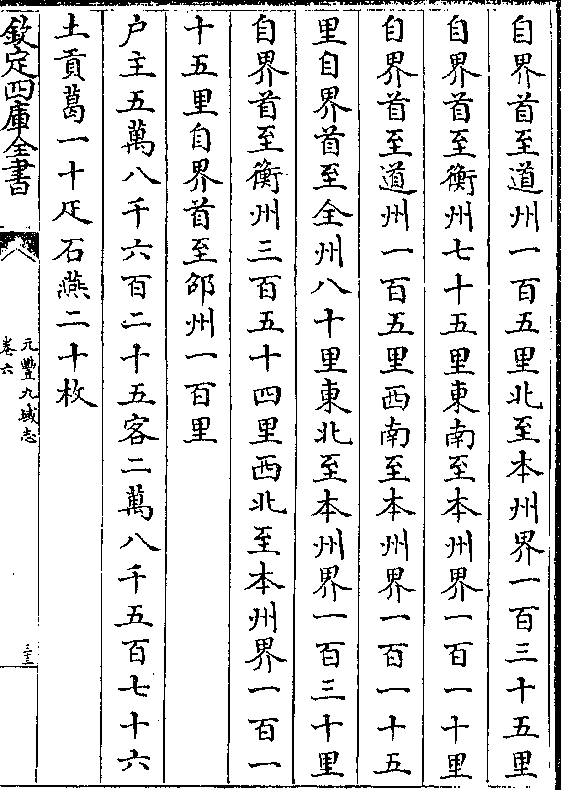 自界首至道州一百五里北至本州界一百三十五里
自界首至衡州七十五里東南至本州界一百一十里
自界首至道州一百五里西南至本州界一百一十五
里自界首至全州八十里東北至本州界一百三十里
自界首至衡州三百五十四里西北至本州界一百一
十五里自界首至邵州一百里
户主五萬八千六百二十五客二萬八千五百七十六
土貢葛一十疋石燕二十枚
欽定四庫全書
元豐九域志
卷六
三十三